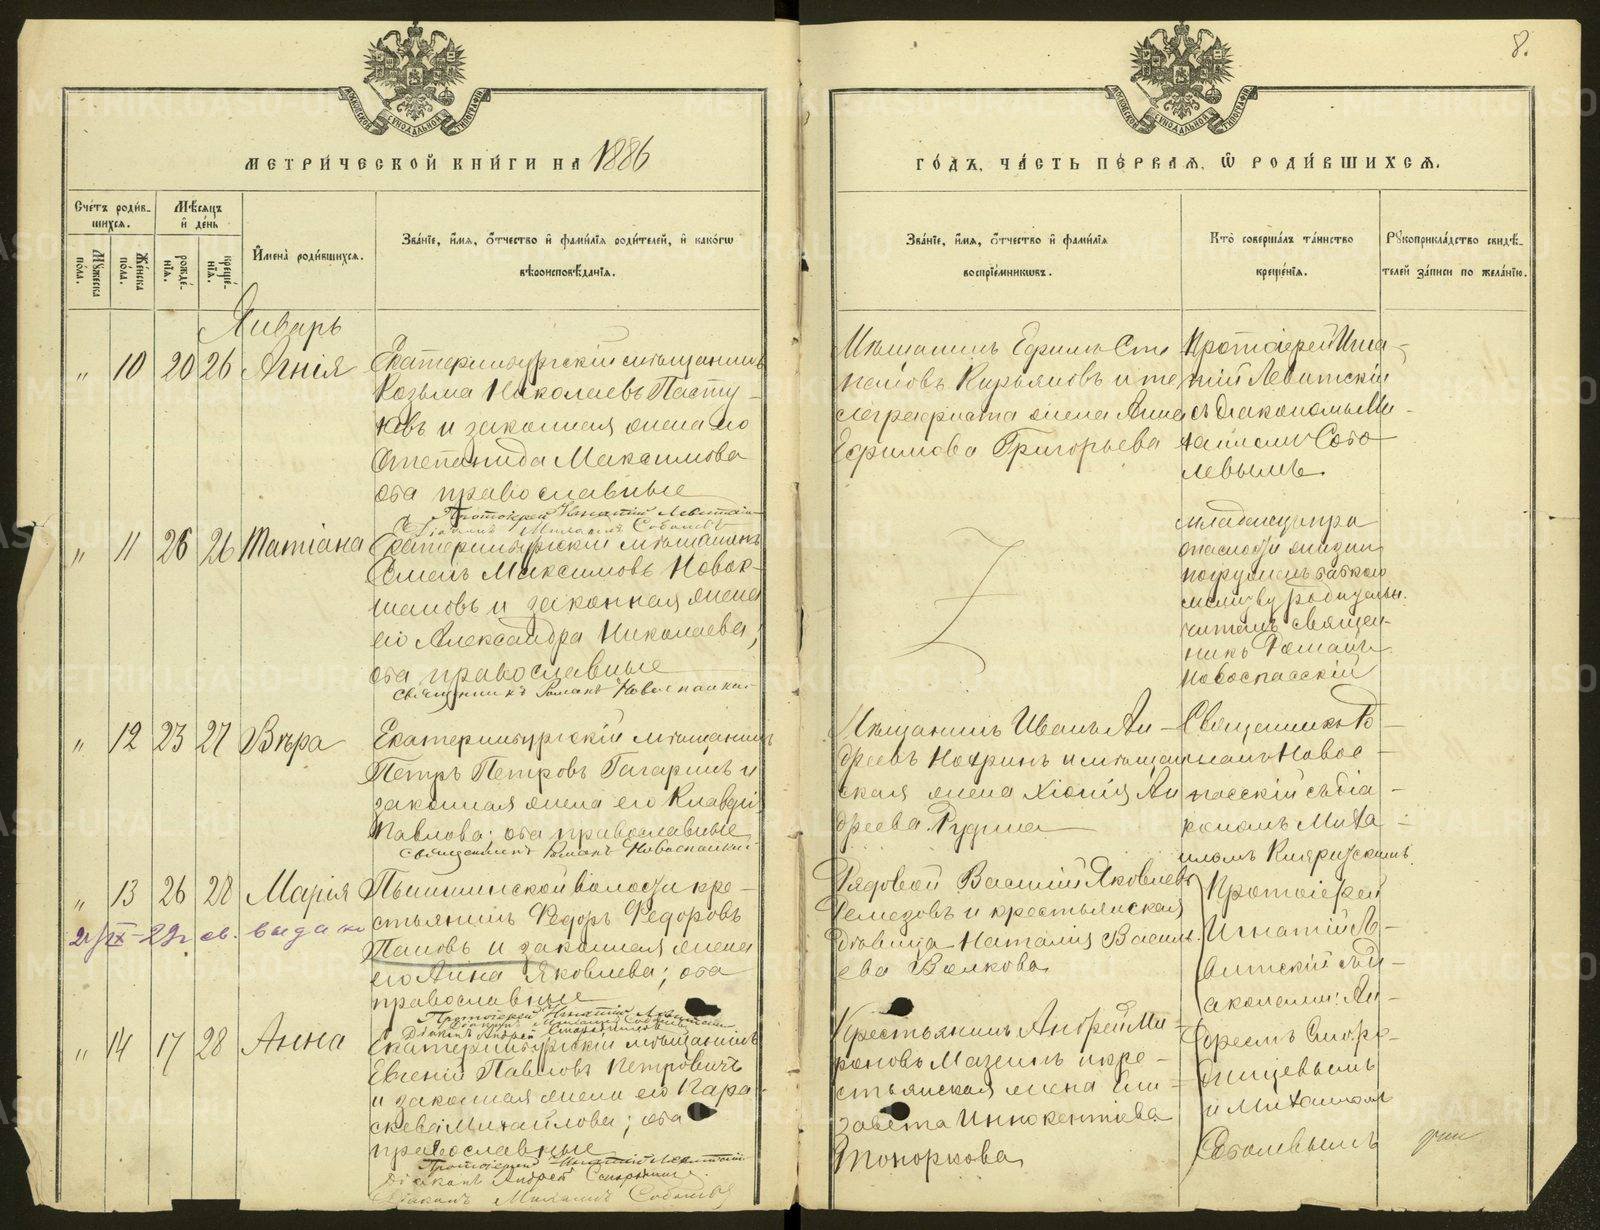 8.
МОСКОВСКОЙ СѴНОДАЛЬНОЙ ТИПОГРАФІИ
МОСКОВСКОЙ СѴНОДАЛЬНОЙ ТИПОГРАФІИ
МЕТРИ́ЧЕСКОЙ КНИ́ГИ НА 1886
ГО́ДЪ, ЧА́СТЬ ПЕ́РВАЯ, Ѡ҆ РОДИ́ВШИХСѦ.
Сче́тъ роди́в-
шихсѧ.
Мꙋ́жеска
по́ла.
Же́нска
по́ла.
Мѣ́сѧцъ
и҆ де́нь
рожде́-
нїѧ.
креще́-
нїѧ.
И҆мена̀ роди́вшихсѧ.
Зва́нїе, и҆́мѧ, ѻ҆́тчество и҆ фами́лїѧ роди́телей, и҆ како́гѡ
вѣроисповѣ́данїѧ.
Зва́нїе, и҆́мѧ, ѻ҆́тчество и҆ фами́лїѧ
воспрїе́мникѡвъ.
Кто̀ соверша́лъ та́инство
креще́нїѧ.
Рꙋкоприкла́дство свидѣ́-
телей за́писи по жела́нїю.
Январь
„ 10 20 26 Агнія
Екатеринбургскій мѣщанинъ
Козьма Николаевъ Пасту-
ховъ и законная жена его
Степанида Максимова
оба православные
Протоіерей Игнатій Левитскій
Діаконъ Михаилъ Соболевъ
Мѣщанинъ Ефимъ Сте
пановъ Кирьяновъ и те
леграфиста жена Анна
Ефимова Григорьева
Протоіерей Игна-
тій Левитскій
съ діакономъ Ми-
хаиломъ Собо
левымъ
„ 11 26 26 Татіана
Екатеринбургскій мѣщанинъ
Семенъ Максимовъ Новок-
шановъ и законная жена
его Александра Николаева;
оба православные
священникъ Романъ Новоспасскій
младенца по
опасности жизни
священ-
никъ Романъ
Новоспасскій
„ 12 23 27 Вѣра
Екатеринбургскій мѣщанинъ
Петръ Петровъ Гагаринъ и
законная жена его Клавдія
Павлова; оба православные
священникъ Романъ Новоспасскій
Мѣщанинъ Иванъ Ан-
дреевъ Нохринъ и мѣщан
ская жена Хіонія Ан
дреева Рудина
Священникъ Ро-
манъ Новос-
пасскій съ діа-
кономъ Миха-
иломъ
„ 13 26 28 Марія
Пышминской волости кре-
стьянинъ Ѳедоръ Ѳедоровъ
Пановъ и законная жена
его Анна Яковлева; оба
православные
Протоіерей Игнатій Левитскій
Діаконъ Михаилъ Соболевъ
Діаконъ Андрей
21/IX-29г св. выдано
Рядовой Василій Яковлевъ
Ремезовъ и крестьянская
дѣвица Наталія Василь
ева Волкова
Протоіерей
Игнатій Ле-
витскій съ ді-
аконами: Ан-
дреемъ Сморо-
динцевымъ
и Михаиломъ
Соболевымъ
„ 14 17 28 Анна
Екатеринбургскій мѣщанинъ
Евгеній Павловъ Петровичъ
и законная жена его Пара-
скева Михайлова; оба
православные
Протоіерей Игнатій Левитскій
Діаконъ Андрей
Діаконъ Михаилъ Соболевъ
Крестьянинъ Андрей Ми-
роновъ Мазеинъ и кре-
стьянская жена Ели-
завета Иннокентіева
Топоркова
METRIKI.GASO-URAL.RU